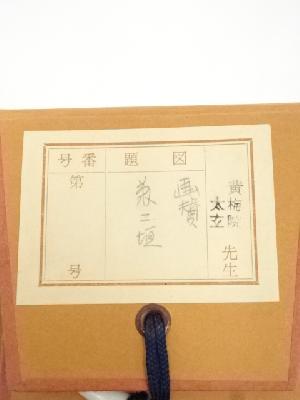 黄梅院
太玄 先生
図題
画賛
二垣
番号
第 号